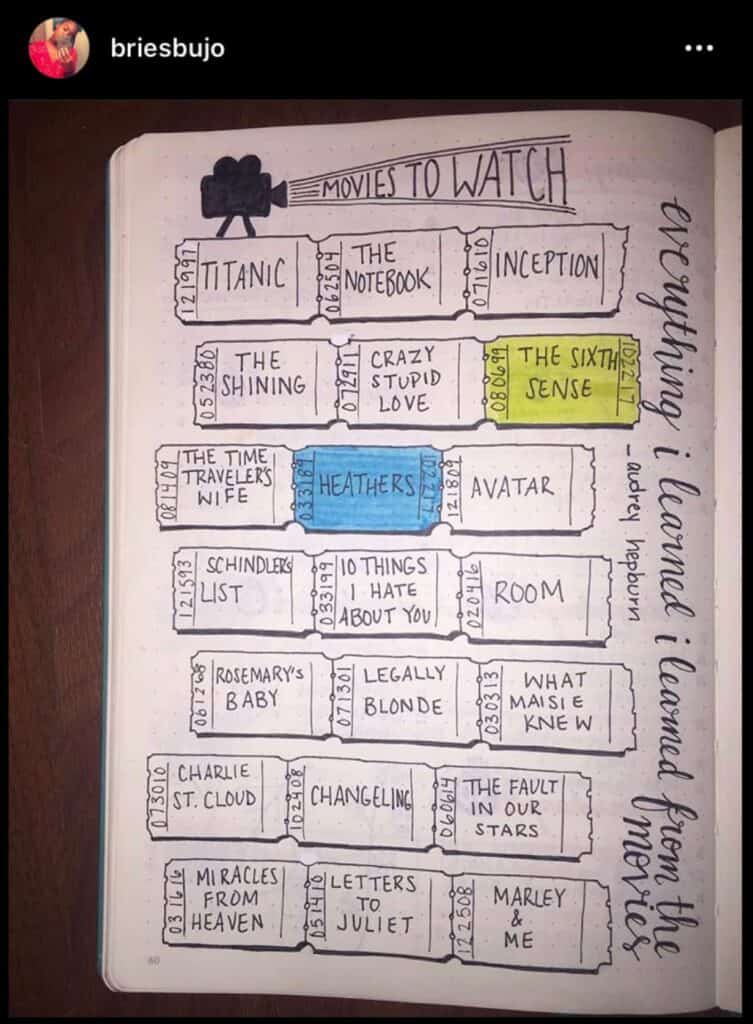 briesbujo
MOVIES TO WATCH
121997
TITANIC
062504
THE
NOTEBOOK
071610
INCEPTION
052380
THE
SHINING
072911
CRAZY
STUPID
LOVE
080699
THE SIXTH
SENSE
102217
081409
THE TIME
TRAVELER'S
WIFE
033189
HEATHERS
102217
121809
AVATAR
121593
SCHINDLER'S
LIST
033199
10 THINGS
I HATE
ABOUT YOU
020416
ROOM
061268
ROSEMARY'S
BABY
071301
LEGALLY
BLONDE
030313
WHAT
MAISIE
KNEW
073010
CHARLIE
ST. CLOUD
102408
CHANGELING
060614
THE FAULT
IN OUR
STARS
031616
MIRACLES
FROM
HEAVEN
051410
LETTERS
TO
JULIET
122508
MARLEY
&
ME
everything i learned i learned from the
movies
- audrey hepburn
60